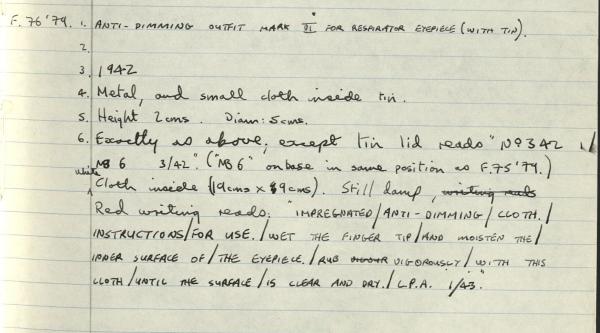 F.76'79. 1. ANTI-DIMMING OUTFIT MARK VI FOR RESPIRATOR EYEPIECE (WITH TIN).
2.
3. 1942
4. Metal, and small cloth inside tin.
5. Height 2cms. Diam: 5cms.
6. Exactly as above, except tin lid reads "NO9 342 1/
MB 6 3/42". ("MB 6" on base in same position as F.75'79.)
white Cloth inside (19cms x 19cms). Still damp, writing reads
Red writing reads: "IMPREGNATED/ANTI-DIMMING/CLOTH./
INSTRUCTIONS/FOR USE./WET THE FINGER TIP/AND MOISTEN THE/
INNER SURFACE OF/THE EYEPIECE./RUB VIGOROUSLY/WITH THIS
CLOTH/UNTIL THE SURFACE/IS CLEAR AND DRY./L.P.A. 1/43."